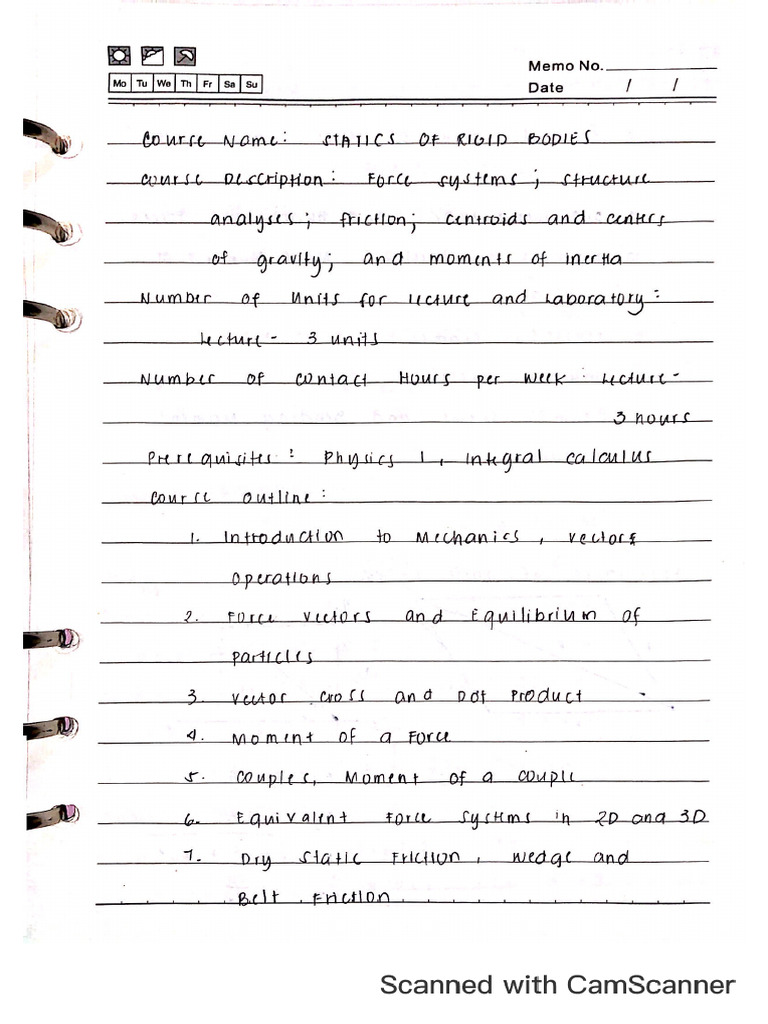 Memo No.
Mo Tu We Th Fr Sa Su
Date / /
Course Name: STATICS OF RIGID BODIES
Course Description: Force systems; structure
analyses; friction; centroids and centers
of gravity; and moments of inertia
Number of Units for Lecture and Laboratory:
Lecture - 3 units
Number of Contact Hours per Week: Lecture -
3 hours
Prerequisites: Physics 1, Integral Calculus
Course Outline:
1. Introduction to Mechanics, Vectors
Operations
2. Force Vectors and Equilibrium of
Particles
3. Vector Cross and Dot Product
4. Moment of a Force
5. Couples, Moment of a Couple
6. Equivalent Force Systems in 2D and 3D
7. Dry Static Friction, Wedge and
Belt Friction
Scanned with CamScanner